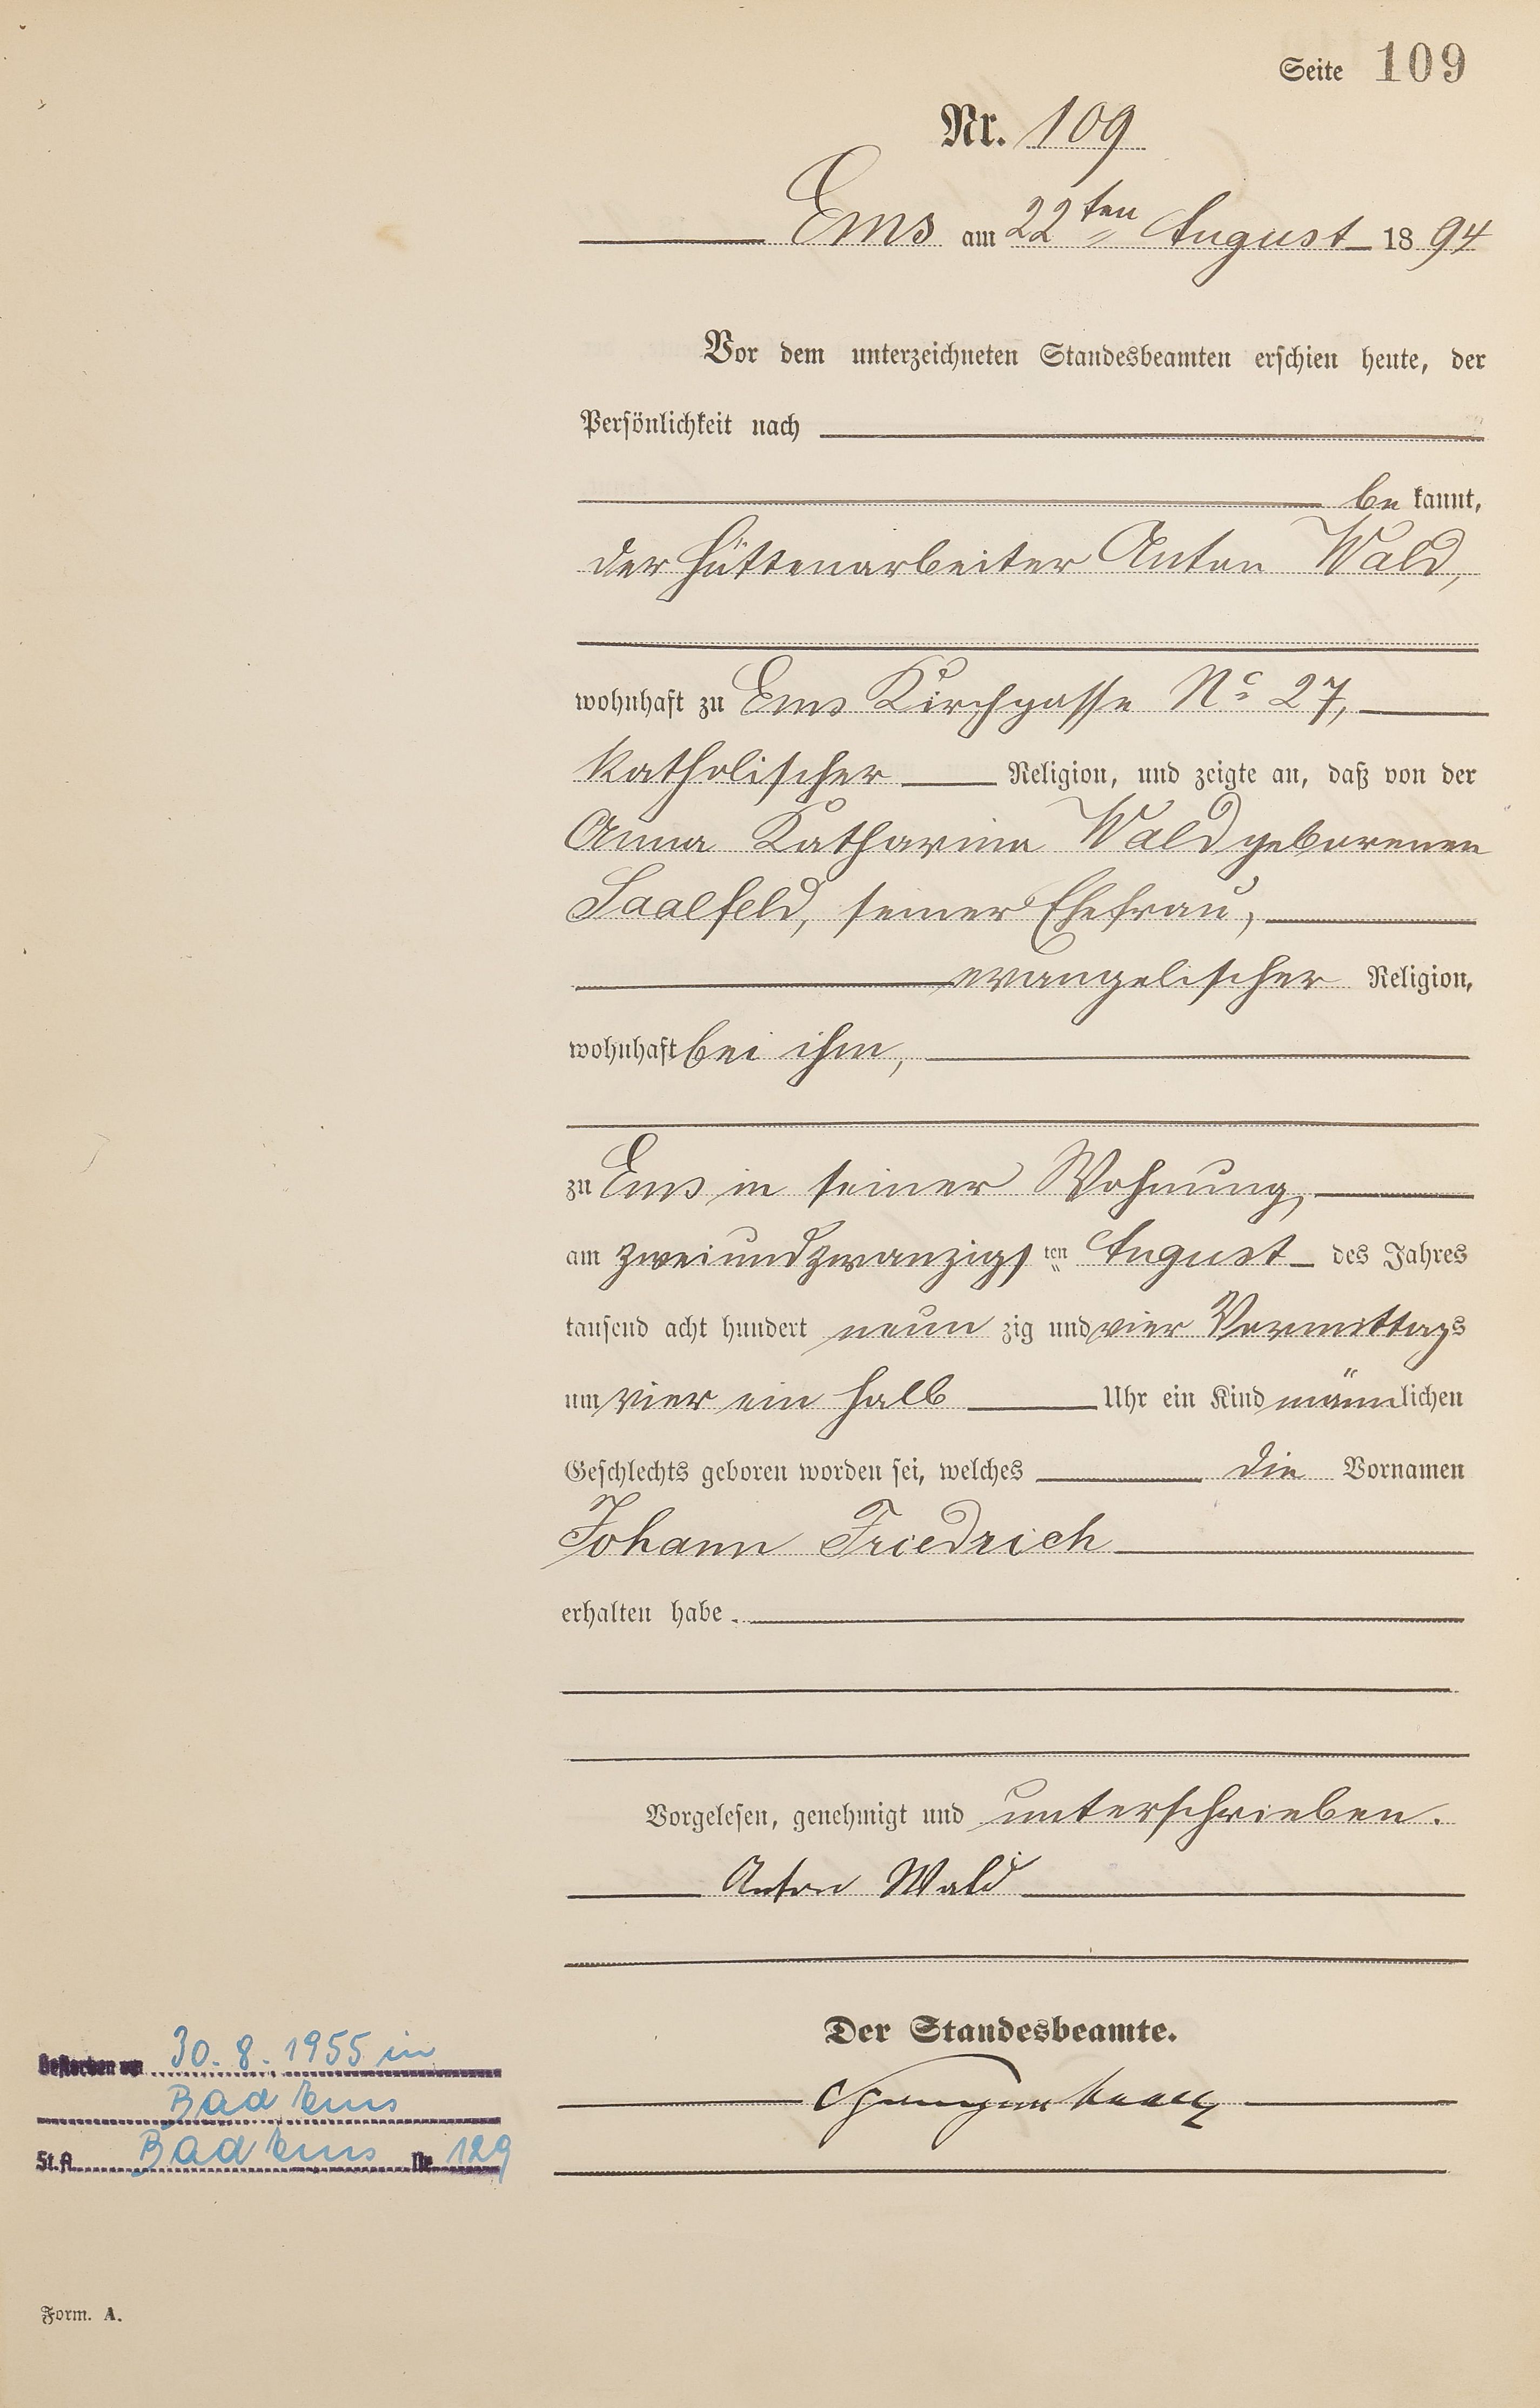 Seite 109
Nr. 109
Ems am 22ten August 1894
Vor dem unterzeichneten Standesbeamten erschien heute, der
Persönlichkeit nach
bekannt,
der Hüttenarbeiter Anton Wald,
wohnhaft zu Ems Kirchgasse No 27,
katholischer Religion, und zeigte an, daß von der
Anna Katharina Wald geborenen
Saalfeld, seiner Ehefrau,
evangelischer Religion,
wohnhaft bei ihm,
zu Ems in seiner Wohnung,
am zweiundzwanzigsten August des Jahres
tausend acht hundert neunzig und vier Vormittags
um vier ein halb Uhr ein Kind männlichen
Geschlechts geboren worden sei, welches die Vornamen
Johann Friedrich
erhalten habe.
Vorgelesen, genehmigt und unterschrieben.
Anton Wald
Der Standesbeamte.
Gestorben am 30.8.1955 in
Bad Ems
St.A. Bad Ems Nr. 129
Form. A.